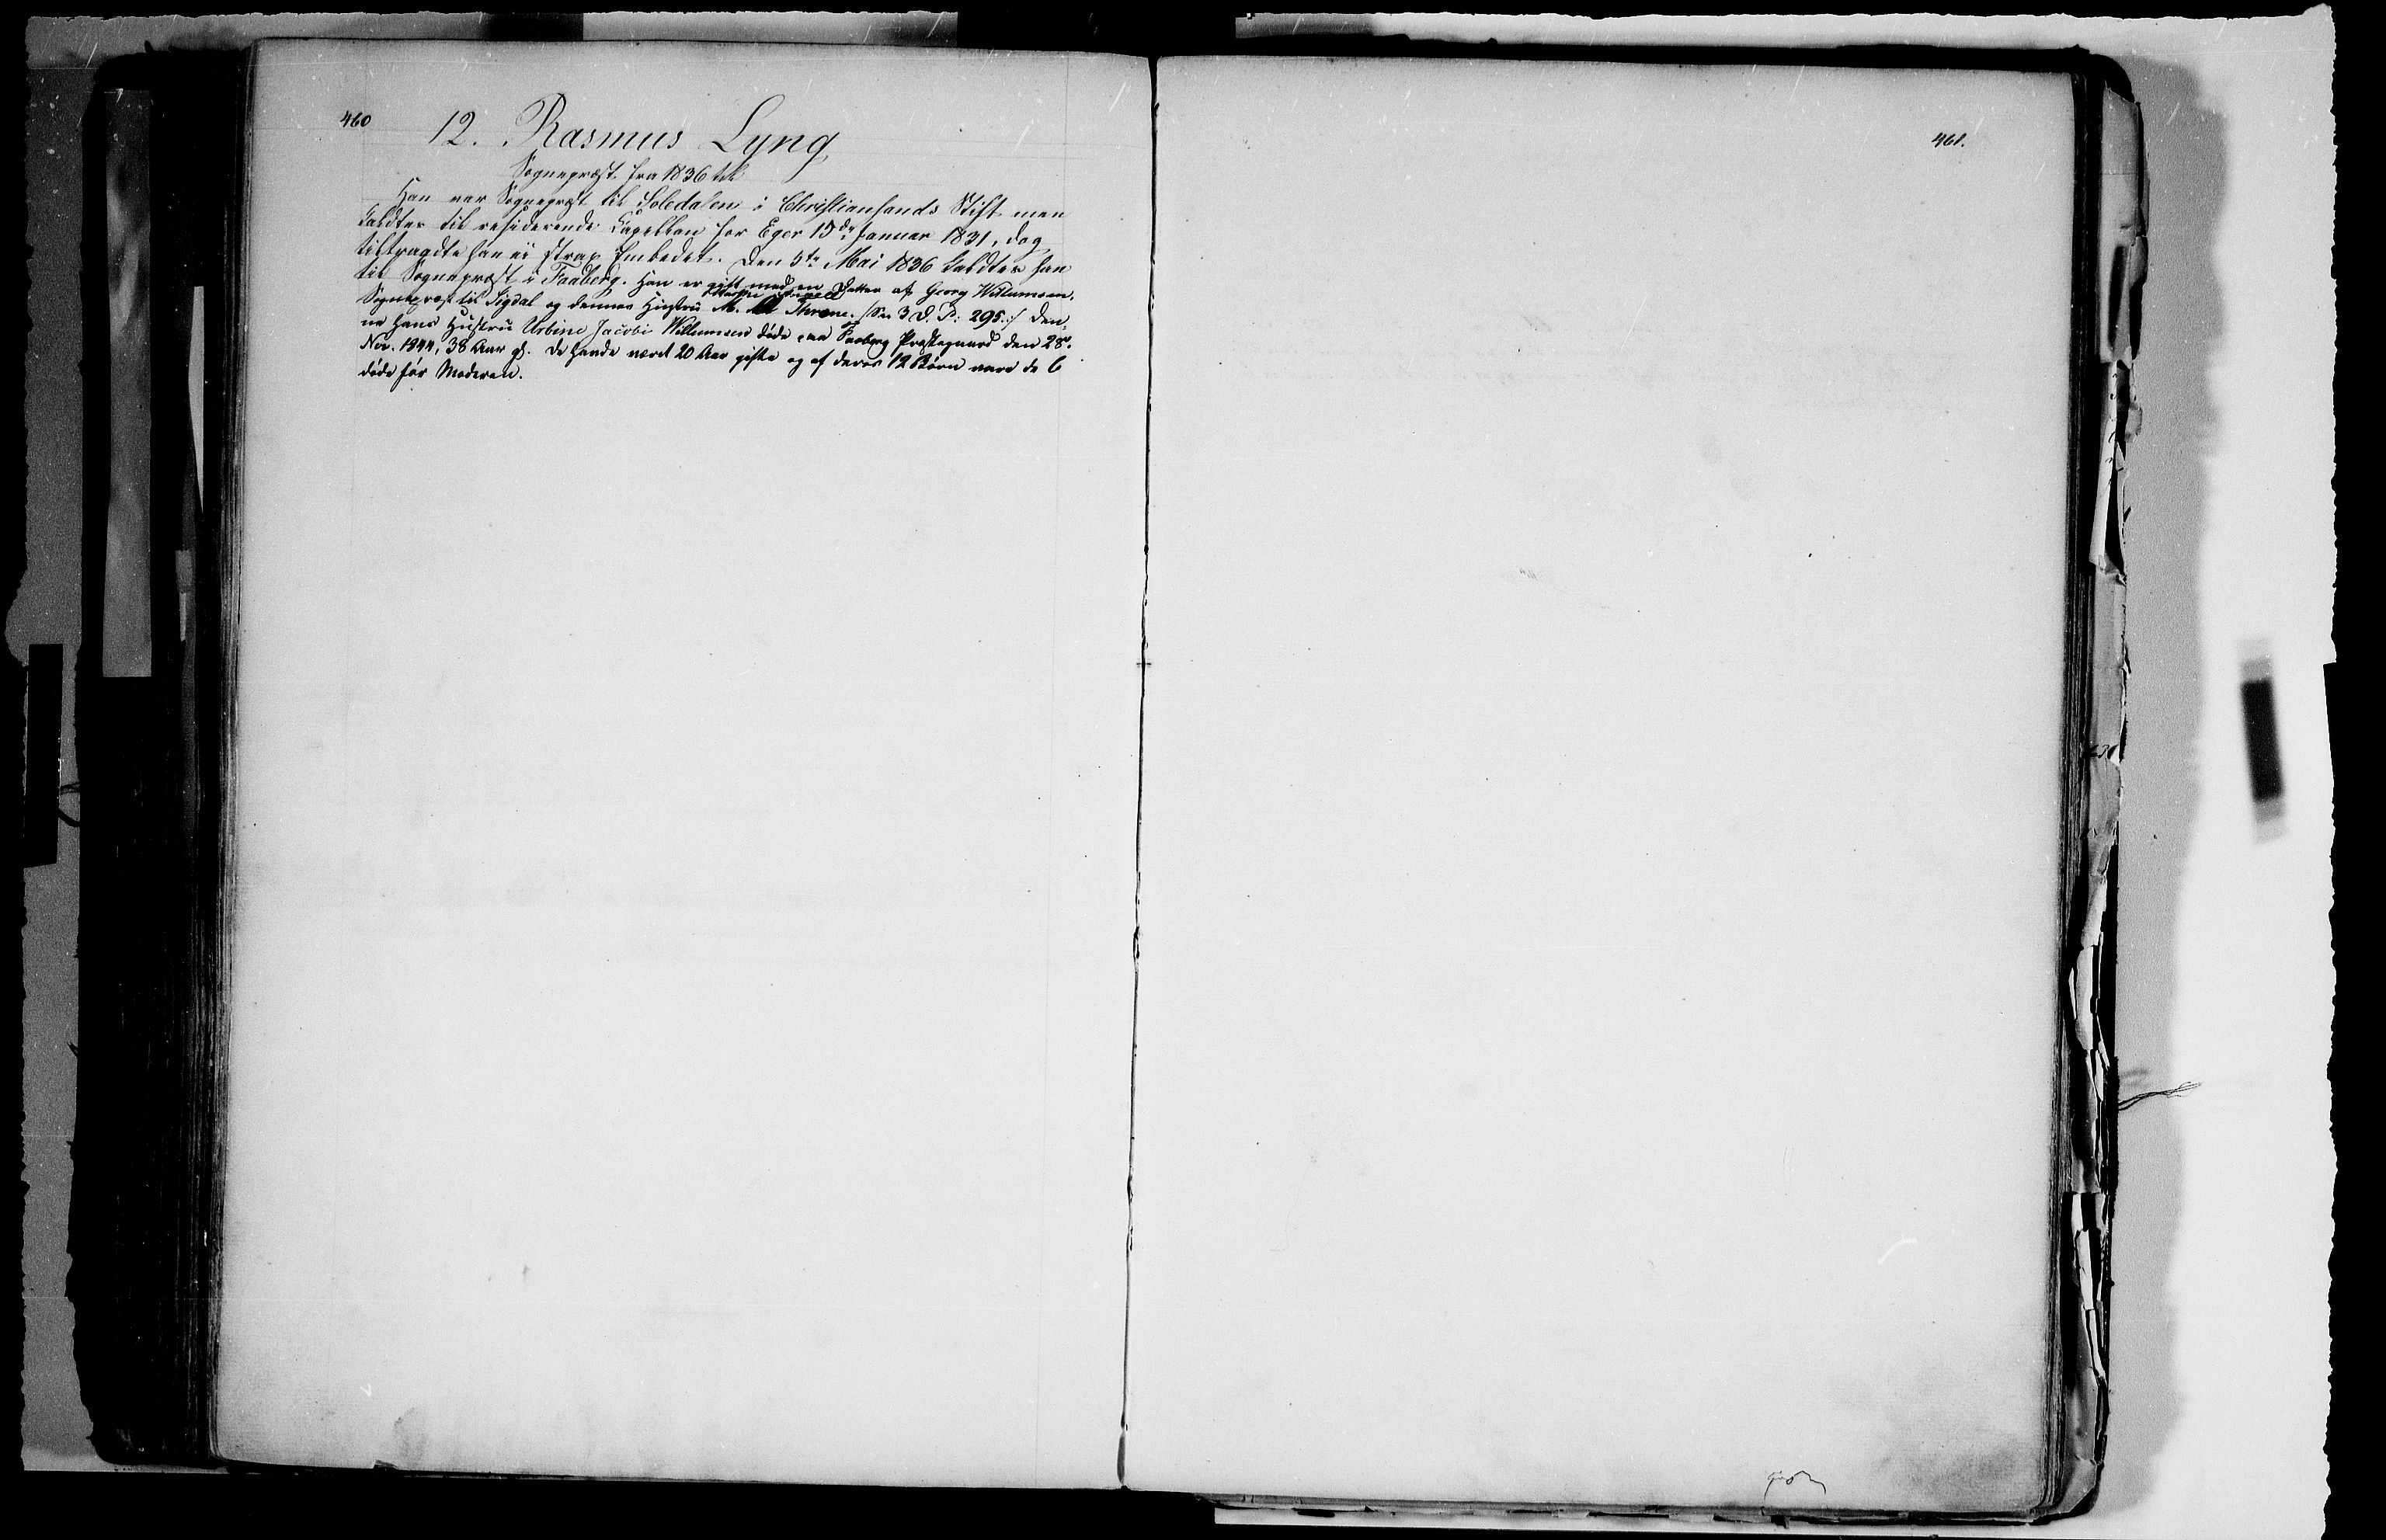 460
12. Rasmus Lyng
Sognepræst fra 1836 til
Han var Sognepræst til Soledalen i Christiansands Stift men
kaldtes til residerende Capellan for Eger 15de Januar 1831, dog
tiltraadte han ei strax Embedet. Den 5te Mai 1836 kaldtes han
til Sognepræst i Faaberg. Han er gift med en Datter af Georg Willumsen,
Sognepræst til Sigdal og dennes Hustru M. Thrane. /: See 3 D. P: 295 :/ Den-
ne hans Hustru Urbine Jacobi Willumsen døde paa Faaberg Præstegaard den 28de
Nov. 1844, 38 Aar gl. De havde været 20 Aar gifte og af deres 12 Børn vare de 6
døde før Moderen.
461.